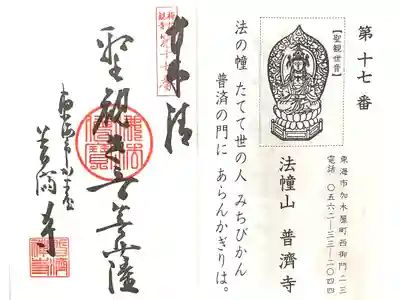 第十七番
【聖観世音】
東海市加木屋町西御門二三
電話 〇五六二―三三―二〇四四
法幢山 普濟寺
法の幢 たてて世の人 みちびかん
普済の門に あらんかぎりは。
奉拝
聖観世音菩薩
普濟寺